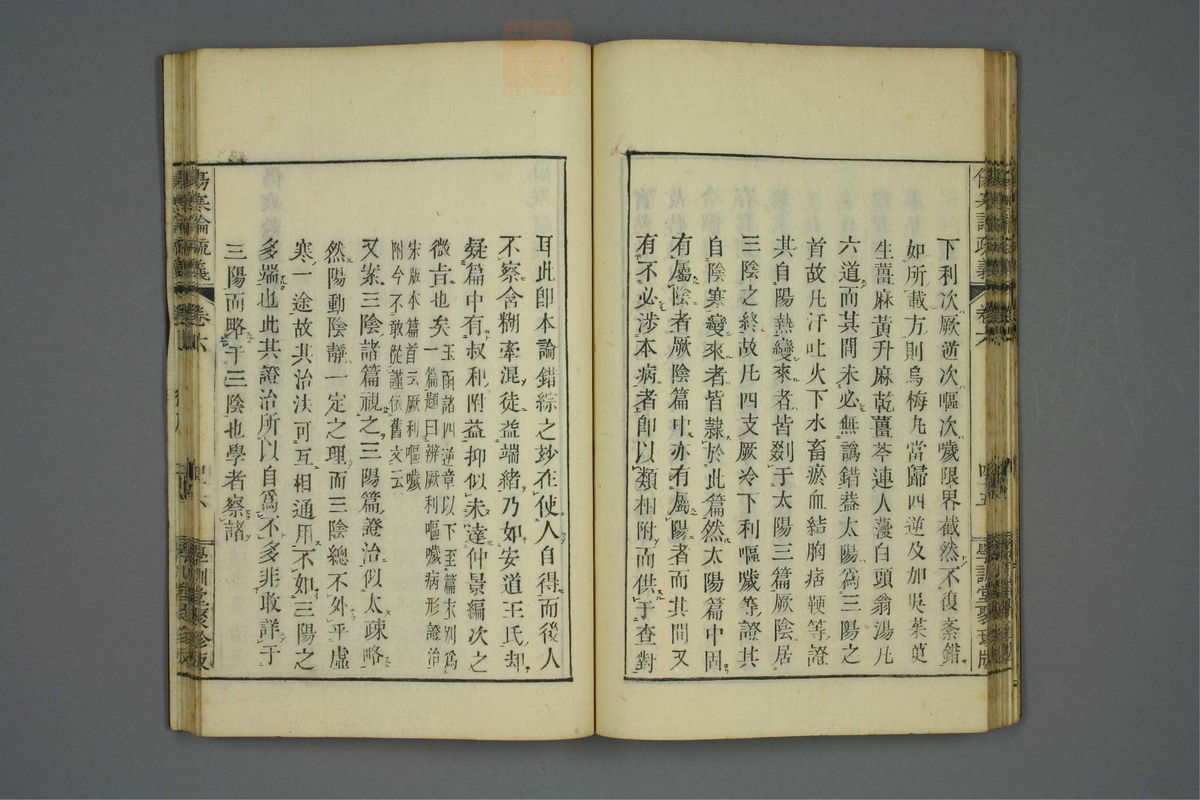 下利次厥逆次嘔次噦限界截然不復紊錯
如所載方則烏梅丸當歸四逆及加吳茱萸
生薑麻黃升麻乾薑芩連人蓡白頭翁湯凡
六道而其間未必無譌錯蓋太陽爲三陽之
首故凡汗吐火下水畜瘀血結胸痞鞕等證
其自陽熱變來者皆剟于太陽三篇厥陰居
三陰之終故凡四支厥冷下利嘔噦等證其
自陰寒變來者皆隷於此篇然太陽篇中固
有屬陰者厥陰篇中亦有屬陽者而其間又
有不必涉本病者卽以類相附而供于查對
耳此卽本論錯綜之玅在使人自得而後人
不察含糊牽混徒益端緒乃如安道王氏却
疑篇中有叔和附益抑似未達仲景編次之
微㫖也矣玉函諸四逆章以下至篇末別爲
一篇題曰辨厥利嘔噦病形證治
宋版本篇首云厥利嘔噦
附今不敢從謹依舊文云
又案三陰諸篇視之三陽篇證治似太疎略
然陽動陰靜一定之理而三陰總不外乎虛
寒一途故其治法可互相通用不如三陽之
多端也此其證治所以自爲不多非敢詳于
三陽而略于三陰也學者察諸
傷寒論疏義
卷六
學訓堂聚珍版
傷寒論疏義
卷六
學訓堂聚珍版